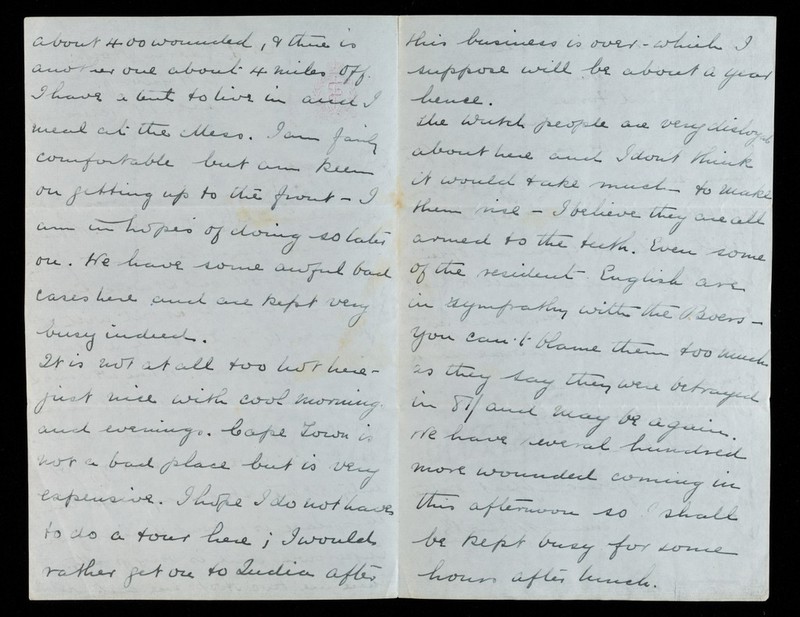 about 400 wounded, & there is
another one about 4 miles off.
I have a tent to live in and I
meal at the Mess. I am fairly
comfortable but am keen
on getting up to the front - I
am in hopes of doing so later
on. We have some awful bad
cases here and are kept very
busy indeed.
It is not at all too hot here -
just nice with cool mornings
and evenings. Cape Town is
not a bad place but is very
expensive. I hope I do not have
to do a tour here; I would
rather get on to India after
this business is over - which I
suppose will be about a year
hence.
The Dutch people are very disloyal
about here and I dont think
it would take much - to make
them rise - I believe they are all
armed to the teeth. Even some
of the resident English are
in sympathy with the Boers -
you can't blame them too much
as they say they were betrayed
in 81/ and may be again.
We have several hundred
more wounded coming in
this afternoon so I shall
be kept busy for some
hours after lunch.